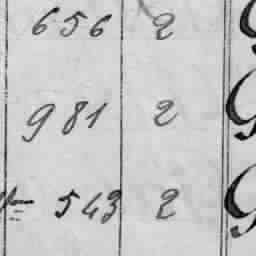 656 2
981 2
543 2